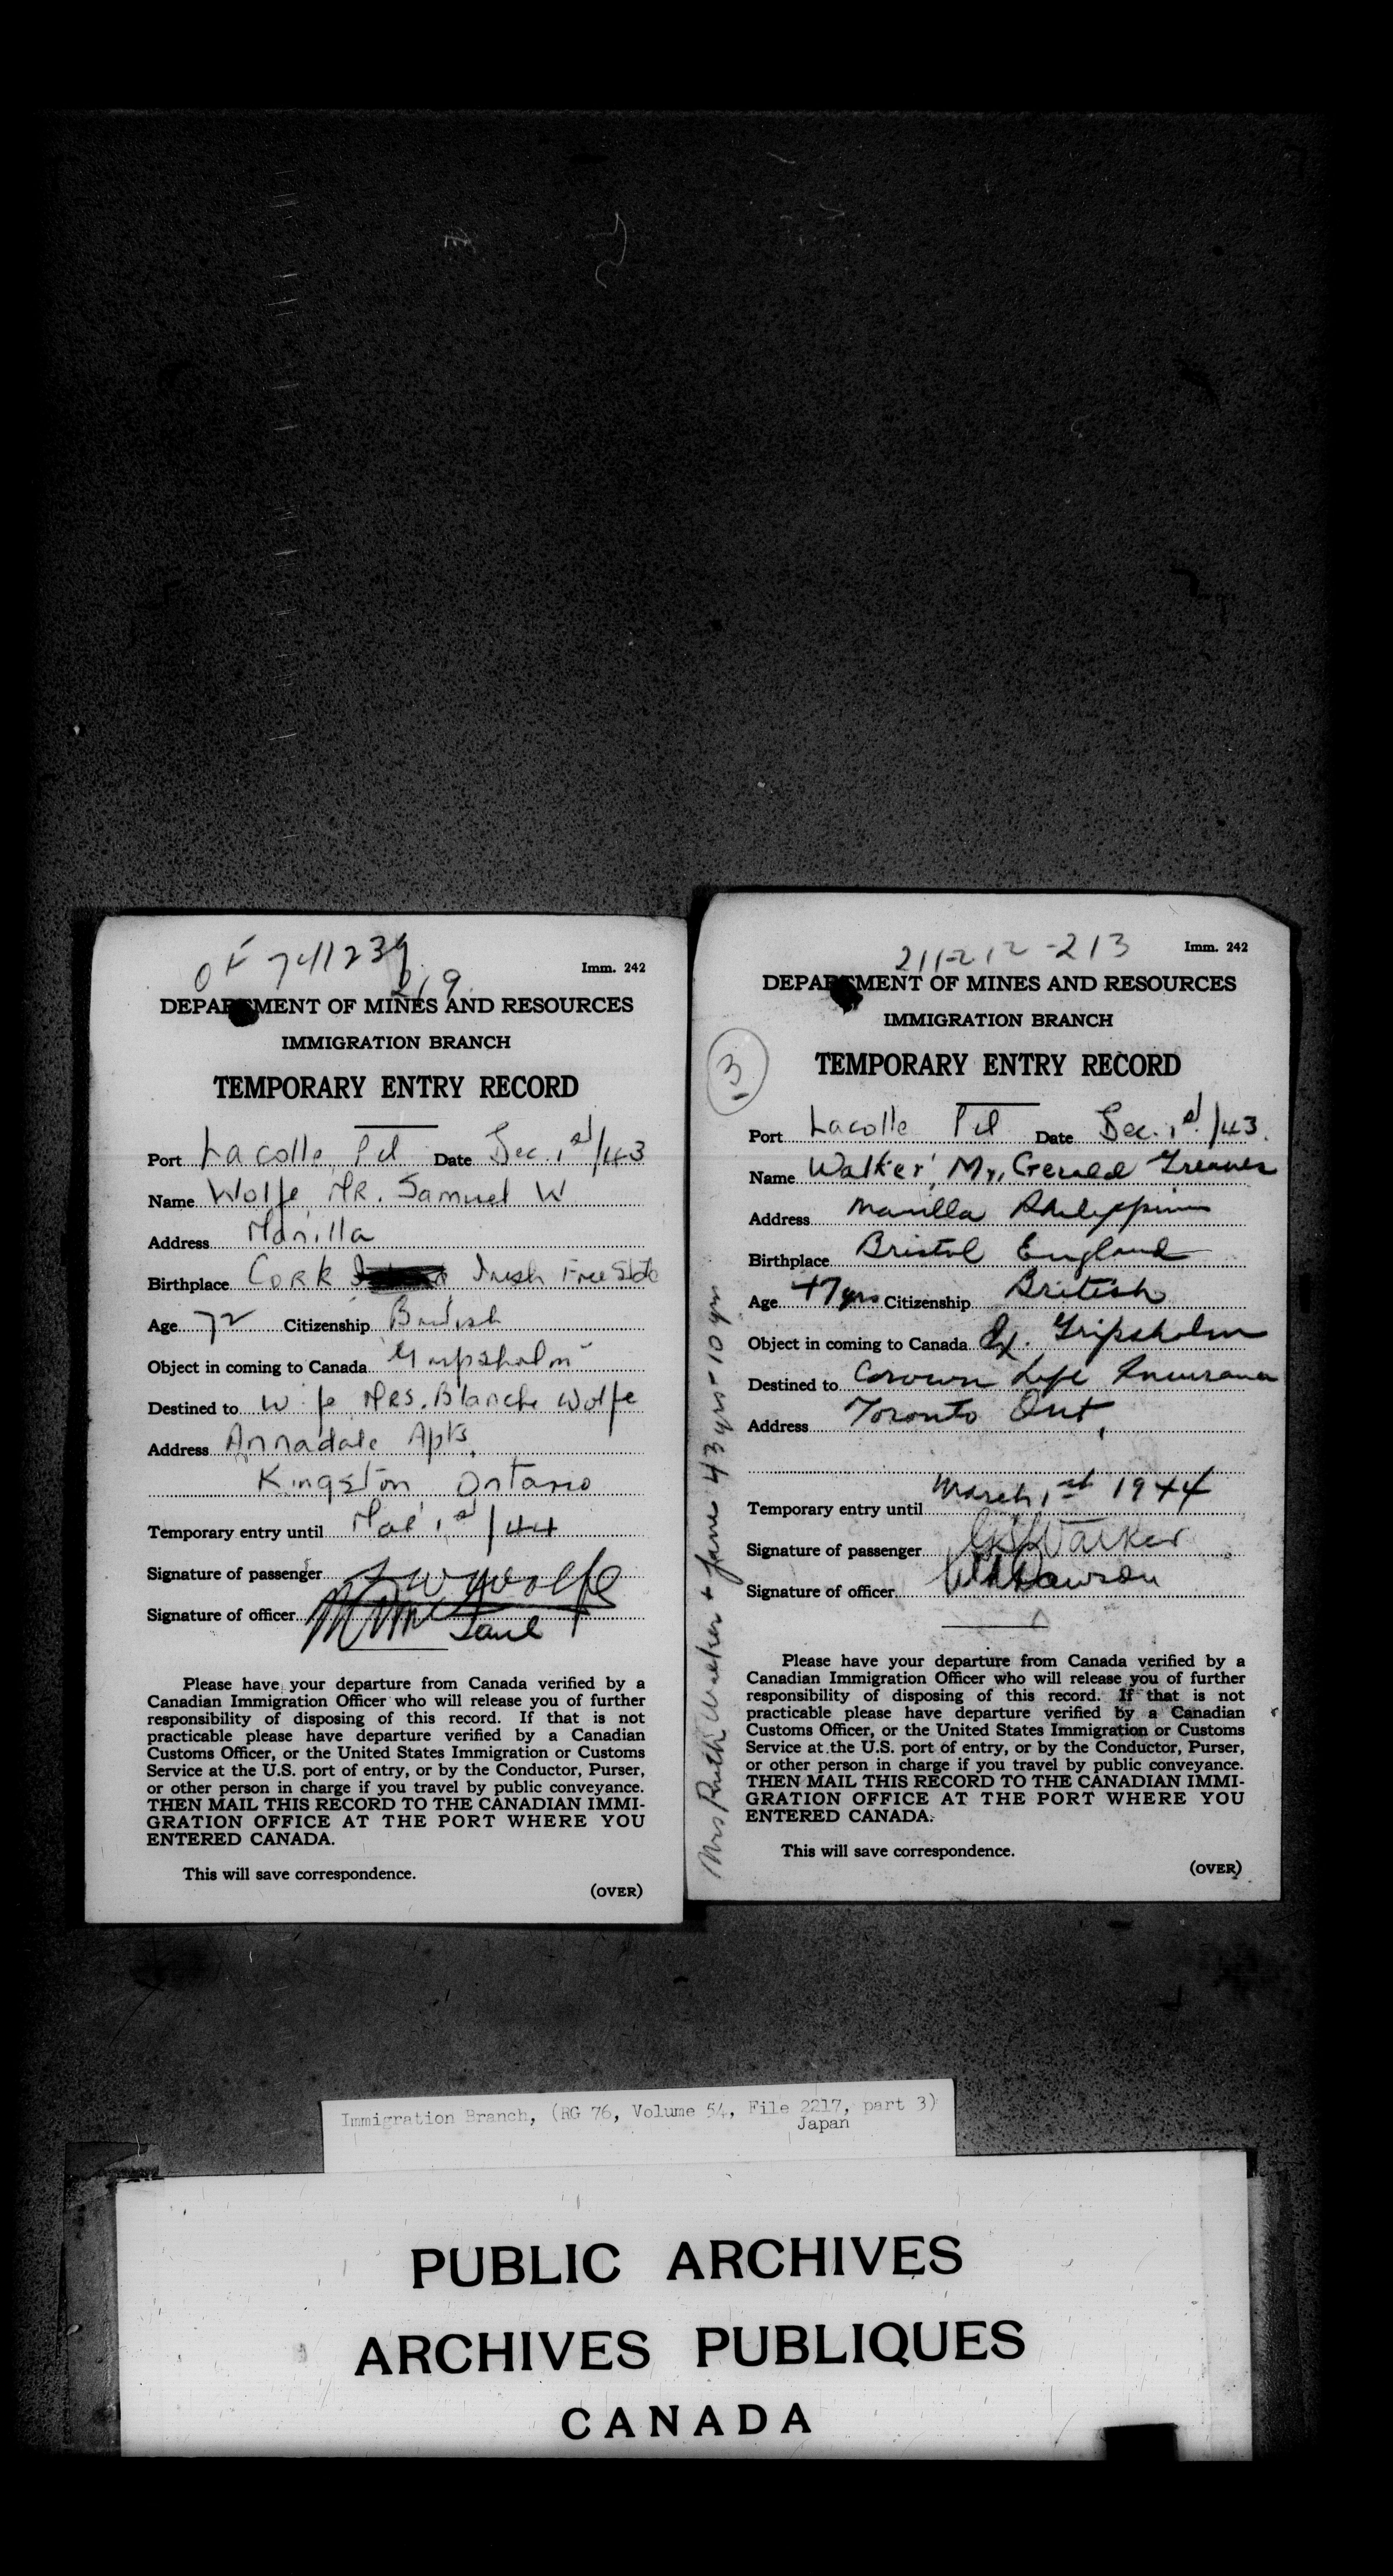 OF 741239
219
Imm. 242
DEPARTMENT OF MINES AND RESOURCES
IMMIGRATION BRANCH
TEMPORARY ENTRY RECORD
Port Lacolle Date Dec. 1st/43
Name Wolfe, MR. Samuel W
Address Manilla
Birthplace CORK Irish Free State
Age 72 Citizenship British
Object in coming to Canada Gripsholm
Destined to Wife MRS. Blanche Wolfe
Address Annadale Apts.
Kingston Ontario
Temporary entry until Mar 1st/44
Signature of passenger S W Wolfe
Signature of officer
Please have your departure from Canada verified by a
Canadian Immigration Officer who will release you of further
responsibility of disposing of this record. If that is not
practicable please have departure verified by a Canadian
Customs Officer, or the United States Immigration or Customs
Service at the U.S. port of entry, or by the Conductor, Purser,
or other person in charge if you travel by public conveyance.
THEN MAIL THIS RECORD TO THE CANADIAN IMMI-
GRATION OFFICE AT THE PORT WHERE YOU
ENTERED CANADA.
This will save correspondence.
(OVER)
211-212-213
Imm. 242
DEPARTMENT OF MINES AND RESOURCES
IMMIGRATION BRANCH
3
TEMPORARY ENTRY RECORD
Port Lacolle Date Dec. 1st/43.
Name Walker, Mr, Gerald Greaves
Address Manilla Philippines
Birthplace Bristol England
Age 47 yrs Citizenship British
Object in coming to Canada Ex. Gripsholm
Destined to Crown Life Insurance
Address Toronto Ont,
Temporary entry until March 1st 1944
Signature of passenger G G Walker
Signature of officer Dawson
Please have your departure from Canada verified by a
Canadian Immigration Officer who will release you of further
responsibility of disposing of this record. If that is not
practicable please have departure verified by a Canadian
Customs Officer, or the United States Immigration or Customs
Service at the U.S. port of entry, or by the Conductor, Purser,
or other person in charge if you travel by public conveyance.
THEN MAIL THIS RECORD TO THE CANADIAN IMMI-
GRATION OFFICE AT THE PORT WHERE YOU
ENTERED CANADA.
This will save correspondence.
(OVER)
Mrs Ruth Walker + Jane 43 yrs - 10 yrs
Immigration Branch, (RG 76, Volume 54, File 2217, part 3)
Japan
PUBLIC ARCHIVES
ARCHIVES PUBLIQUES
CANADA